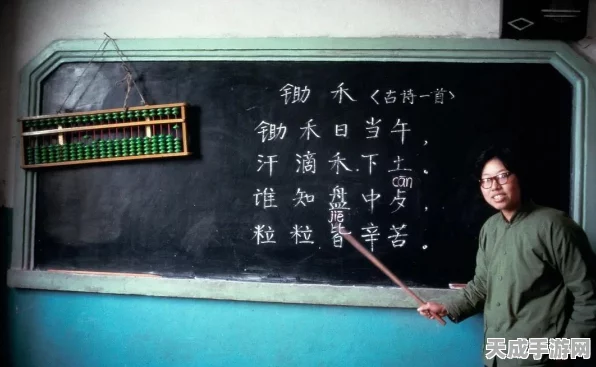 锄 禾 〈古诗一首〉
锄 禾 日 当 午，
汗 滴 禾 下 土。
cān
谁 知 盘 中 歺，
jiē
粒 粒 皆 辛 苦。
天成手游网